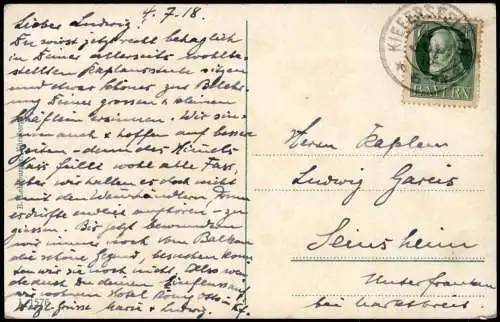 4.7.18.
Lieber Ludwig.
Du wirst jetzt recht behaglich
in Deiner allerseits wohlbe-
stellten Kaplansstube sitzen
und etwas schönes zur Beleh-
rung Deiner grossen & kleinen
Schäflein ersinnen. Wir sin-
nen auch & hoffen auf bessere
Zeiten - denn des Himmels
Nass füllt wohl alle Fass,
aber wir halten es doch nicht
mit den Weinhändlern, denn
es dürfte endlich aufhören - zu
giessen. Bis jetzt bewundern
wir immer noch vom Balkon
die schöne Gegend, besuchen konn-
ten wir sie noch nicht. Also
Du deinen Einfluss auf
wir wohnen Hotel König Otto
Grüsse Maria & Ludwig.
KIEFERSF
BAYERN
Herrn Kaplan
Ludwig Gareis
Seinsheim
Unterfranken
bei Marktbreit
1278